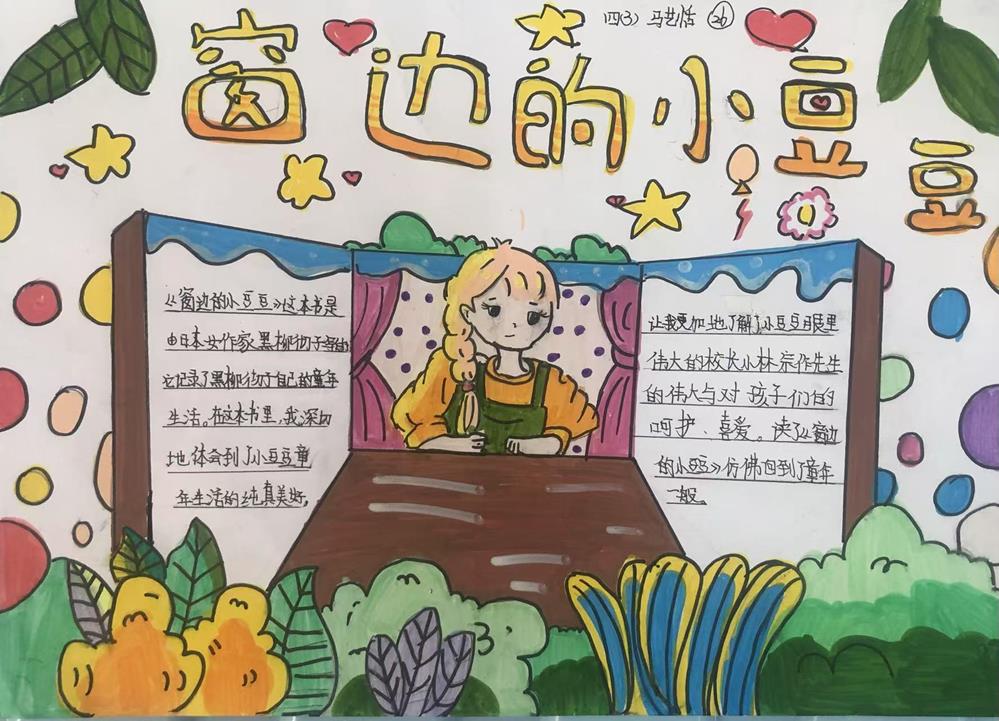 四(3) 马艺恬 26
窗边的小豆豆
《窗边的小豆豆》这本书是
由日本女作家黑柳彻子写的
它记录了黑柳彻子自己的童年
生活。在这本书里,我深切
地体会到了小豆豆童
年生活的纯真美好,
让我更加地了解了小豆豆眼里
伟大的校长小林宗作先生
的伟大与对孩子们的
呵护、喜爱。读了《窗边
的小豆豆》仿佛回到了童年
一般。